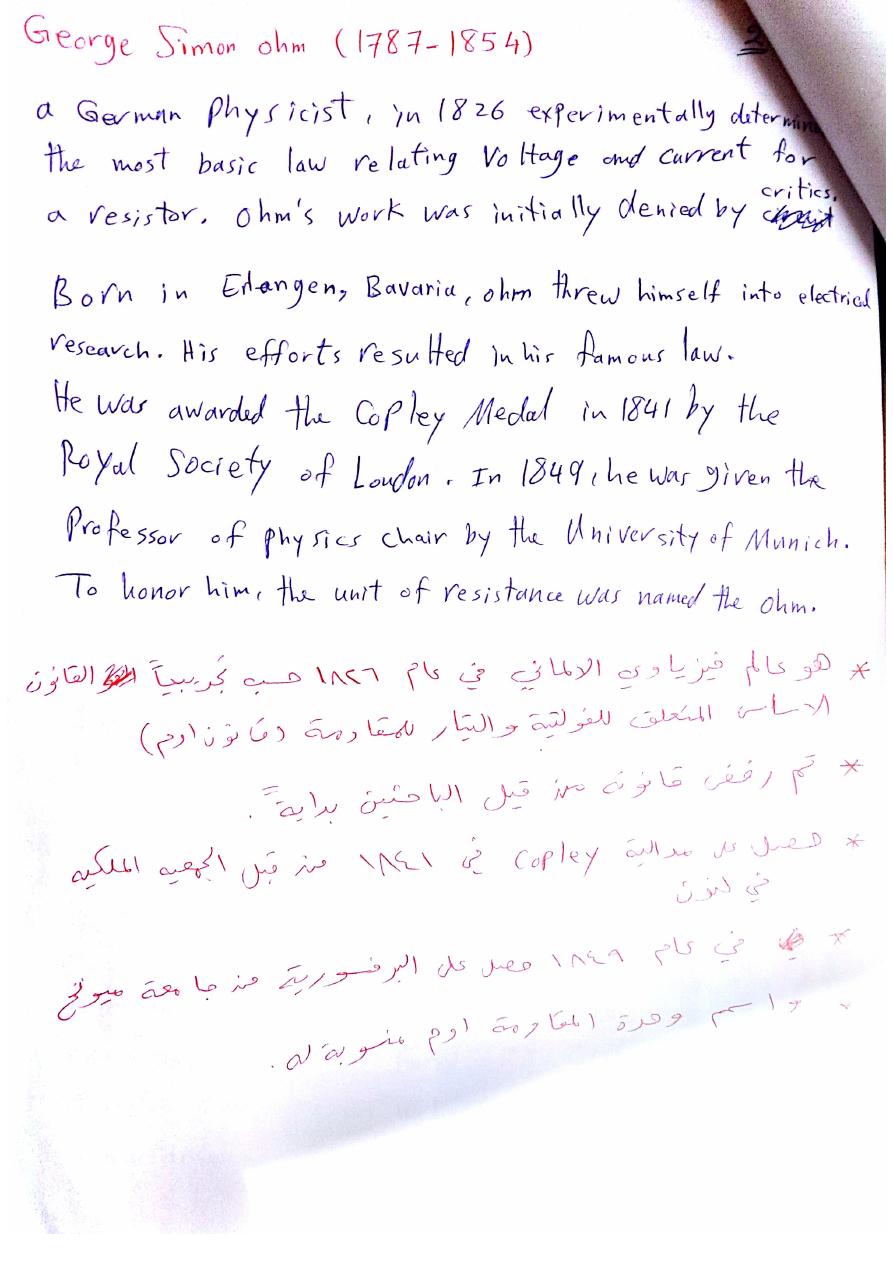 George Simon ohm (1787-1854)
2
a German Physicist, in 1826 experimentally determine
the most basic law relating Voltage and current for
a resistor. ohm's work was initially denied by critics.
Born in Erlangen, Bavaria, ohm threw himself into electrical
research. His efforts resulted in his famous law.
He was awarded the Copley Medal in 1841 by the
Royal Society of London. In 1849, he was given the
Professor of physics chair by the University of Munich.
To honor him, the unit of resistance was named the ohm.
* هو عالم فيزياوي الالماني في عام ١٨٢٦ حسب تجريبياً القانون
الاساس المتعلق للفولتية والتيار للمقاومة (قانون اوم)
* تم رفض قانونه من قبل الباحثين بداية ً.
* حصل على مدالية Copley في ١٨٤١ من قبل الجمعيه الملكيه
في لندن
* في عام ١٨٤٩ حصل على البرفسورية من جامعة ميونخ
* واسم وحدة المقاومة اوم منسوبة له.